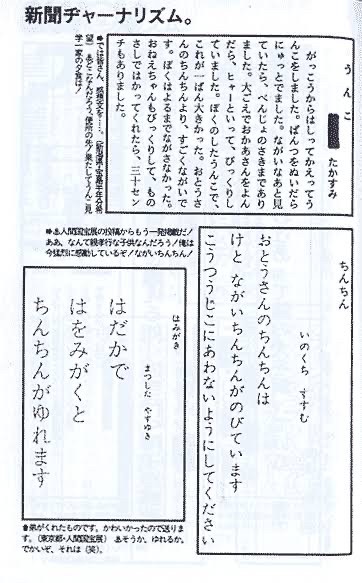 新聞ヂャーナリズム。
うんこ
たかすみ
がっこうからはしってかえってう
んこをしました。ぱんつをぬいだら
にゅっとでました。ながいなあと見
ていたら、べんじょのさきまであり
ました。大ごえでおかあさんをよん
だら、ヒャーといって、びっくりし
ていました。ぼくのしたうんこで、
これが一ばん大きかった。おとうさ
んのちんちんより、すごくながいで
す。ぼくはよるまでながさなかった。
おねえちゃんもびっくりして、もの
さしではかってくれたら、三十セン
チもありました。
●では皆さん、感想文を……。
ちんちん
いのくち すすむ
おとうさんのちんちんは
けと ながいちんちんがのびています
こうつうじこにあわないようにしてください
●♨人間国宝展の投稿からもう一発掲載だ!
ああ、なんて親孝行な子供なんだろう!俺は
今猛烈に感動しているぞ!ながいちんちん!
はみがき
まつした やすゆき
はだかで
はをみがくと
ちんちんがゆれます
●弟がくれたものです。かわいかったので送りま
す。(東京都・人間国宝展)♨そうか。ゆれるか。
でかいぞ、それは(笑)。